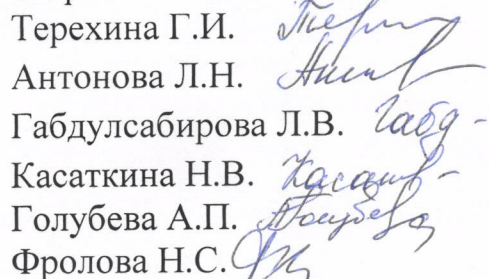 Терехина Г.И.
Антонова Л.Н.
Габдулсабирова Л.В. Габд-
Касаткина Н.В.
Голубева А.П. Голубева
Фролова Н.С.